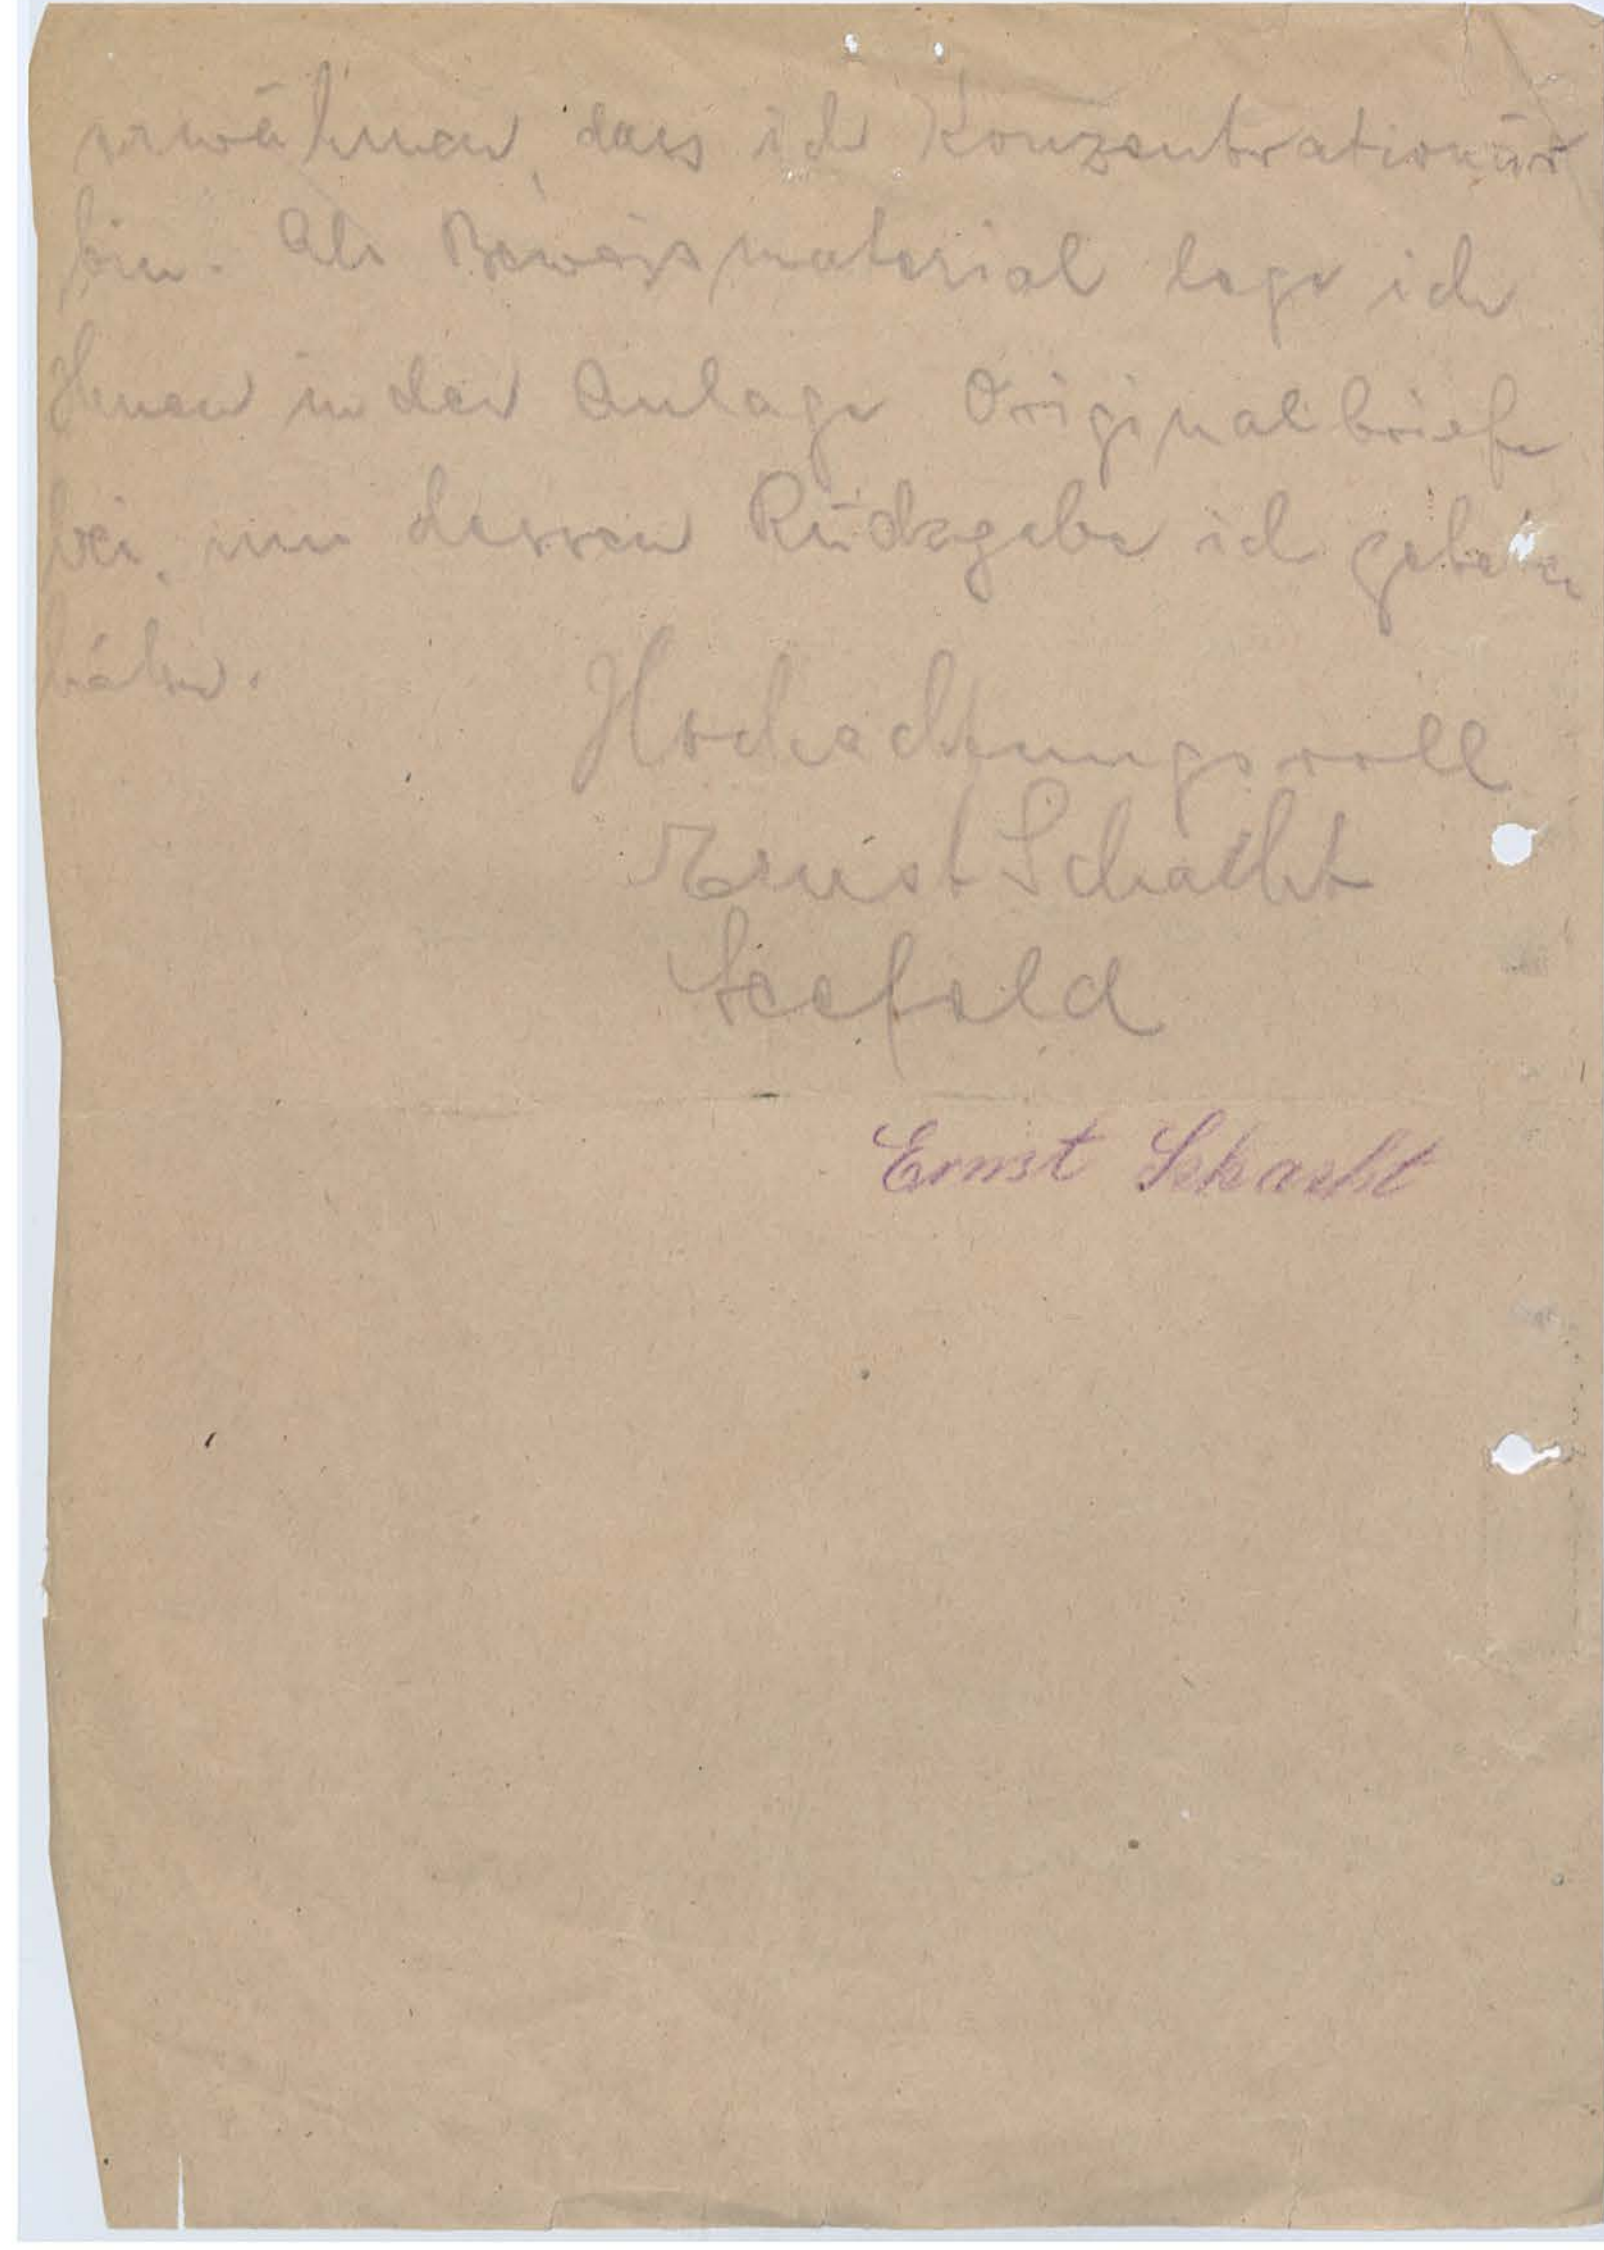 erwähnen, dass ich Konzentrationär
bin. Als Beweismaterial lege ich
Ihnen in der Anlage Originalbriefe
bei, um dessen Rückgabe ich gebeten
hätte.
Hochachtungsvoll
Ernst Schacht
Seefeld
Ernst Schacht